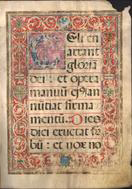 Celi en
arrant
gloriā
dei: et opera
manuū eius an
nuntiat firma
mentū. Dies
diei eructat ver
bū: et nox no